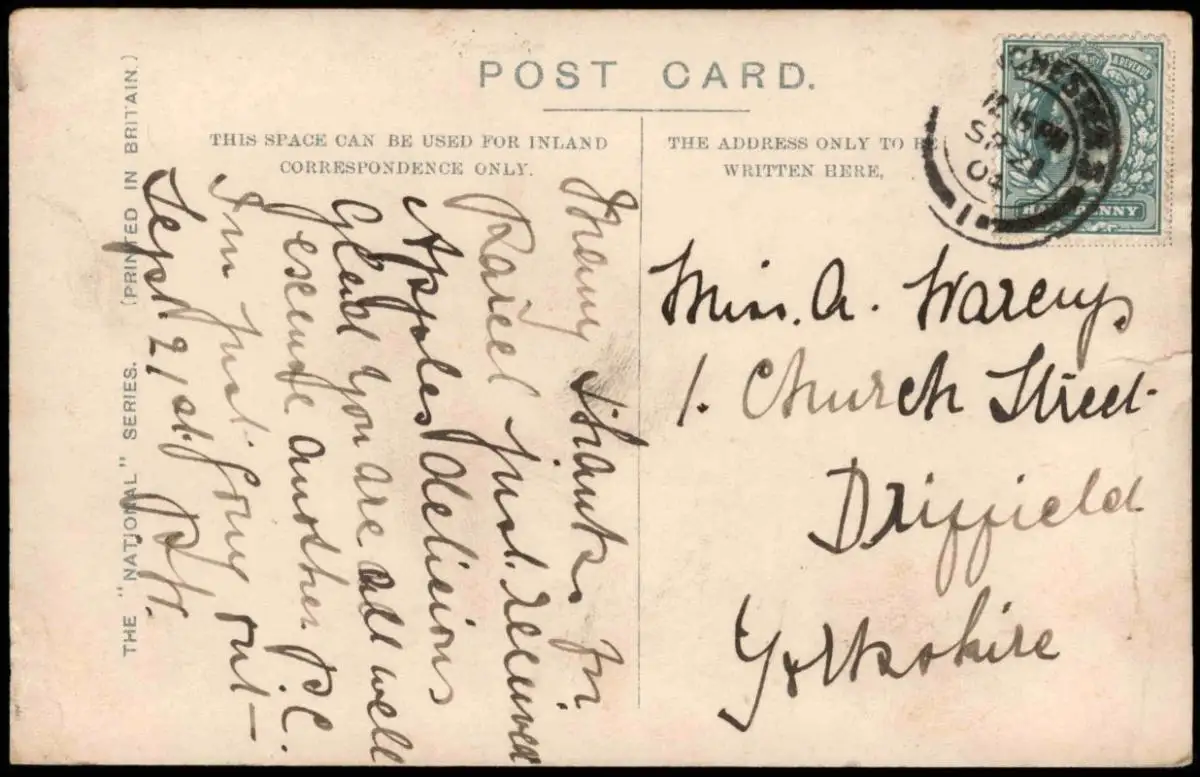 POST CARD.
THIS SPACE CAN BE USED FOR INLAND
CORRESPONDENCE ONLY.
THE ADDRESS ONLY TO BE
WRITTEN HERE,
THE "NATIONAL" SERIES. (PRINTED IN BRITAIN.)
CHESTER
12.15 PM
SP 21
04
1
HALFPENNY
Many thanks for
Parcel just received
Apples delicious
Glad you are all well
excuse another P.C.
I'm just going out —
Sept 21st.
Miss. A.
1. Church Street
Driffield
Yorkshire